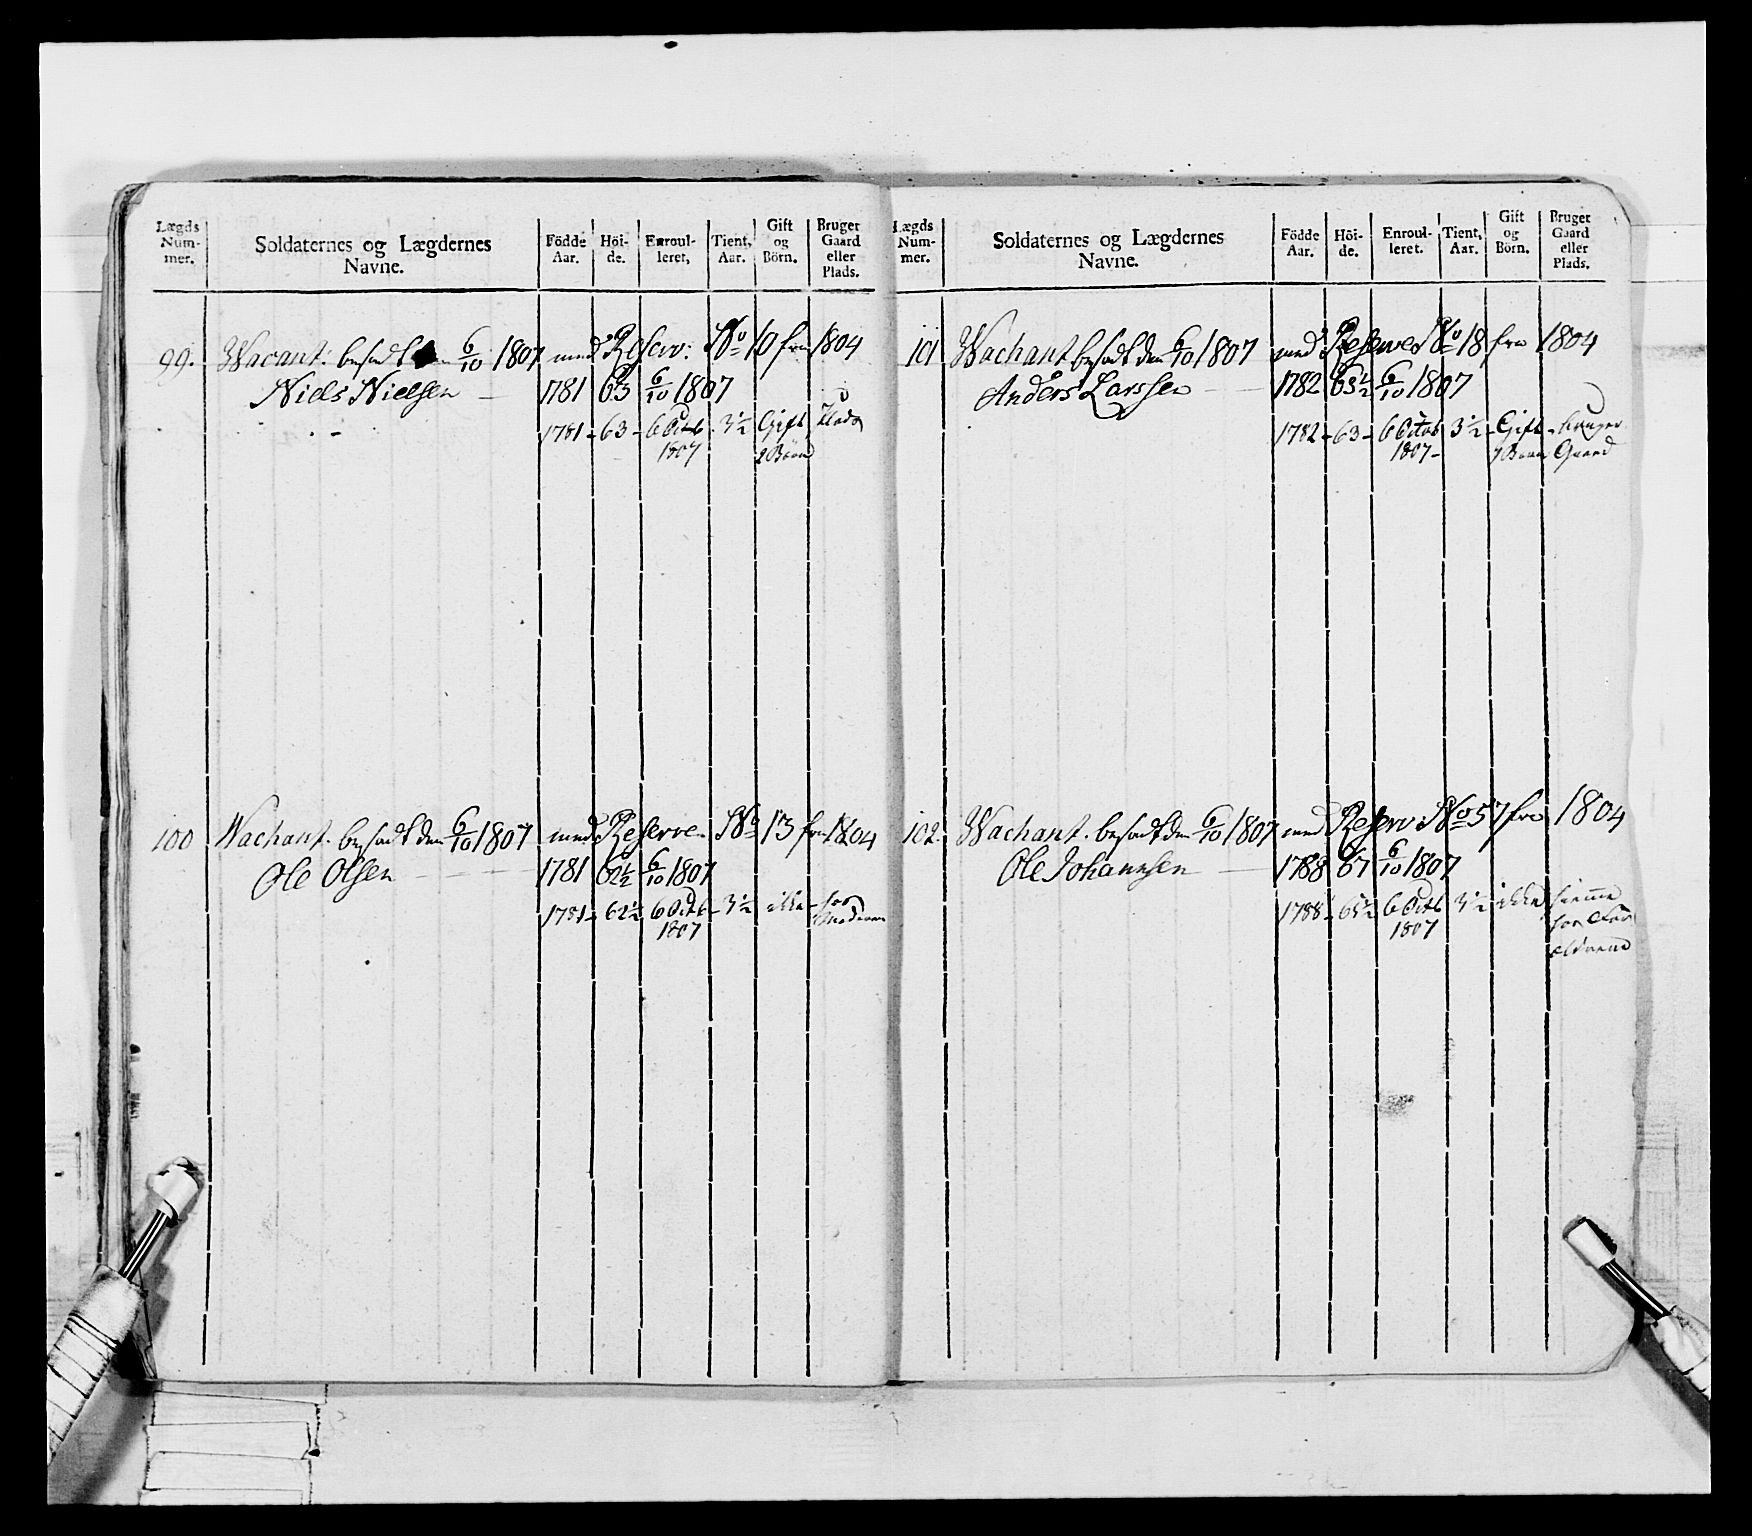 Lægds Num- mer. Soldaternes og Lægdernes Navne. Födde Aar. Höi- de. Enroul- leret. Tient, Aar. Gift og Börn. Bruger Gaard eller Plads.
99. Vacant: besadt den 6/10 1807 med Reserv: No 10 fra 1804
Niels Nielsen – 1781 63 6/10 1807
1781 – 63 – 6 Octb 3½ Gift Plads
1807 2 Börn
100 Wachant. besadt den 6/10 1807 med Reserve No 13 fra 1804
Ole Olsen – – – – 1781 62½ 6/10 1807
1781 – 62½ 6 Octb – 3½ ikke – hos
1807 Moderen
Lægds Num- mer. Soldaternes og Lægdernes Navne. Födde Aar. Höi- de. Enroul- leret. Tient, Aar. Gift og Börn. Bruger Gaard eller Plads.
101 Wachant besadt den 6/10 1807 med Reserve No 18 fra 1804
Anders Larssen – – 1782 63½ 6/10 1807
1782 – 63 – 6 Octob 3½ – Gift – bruger
1807 – Börn Gaard
102. Wachant. besadt den 6/10 1807 med Reserv: No 57 fra 1804
Ole Johannsen – 1788 67 6/10 1807
1788 – 6 Octb 3½ ikke hiemme
1807 hos For
ældrene